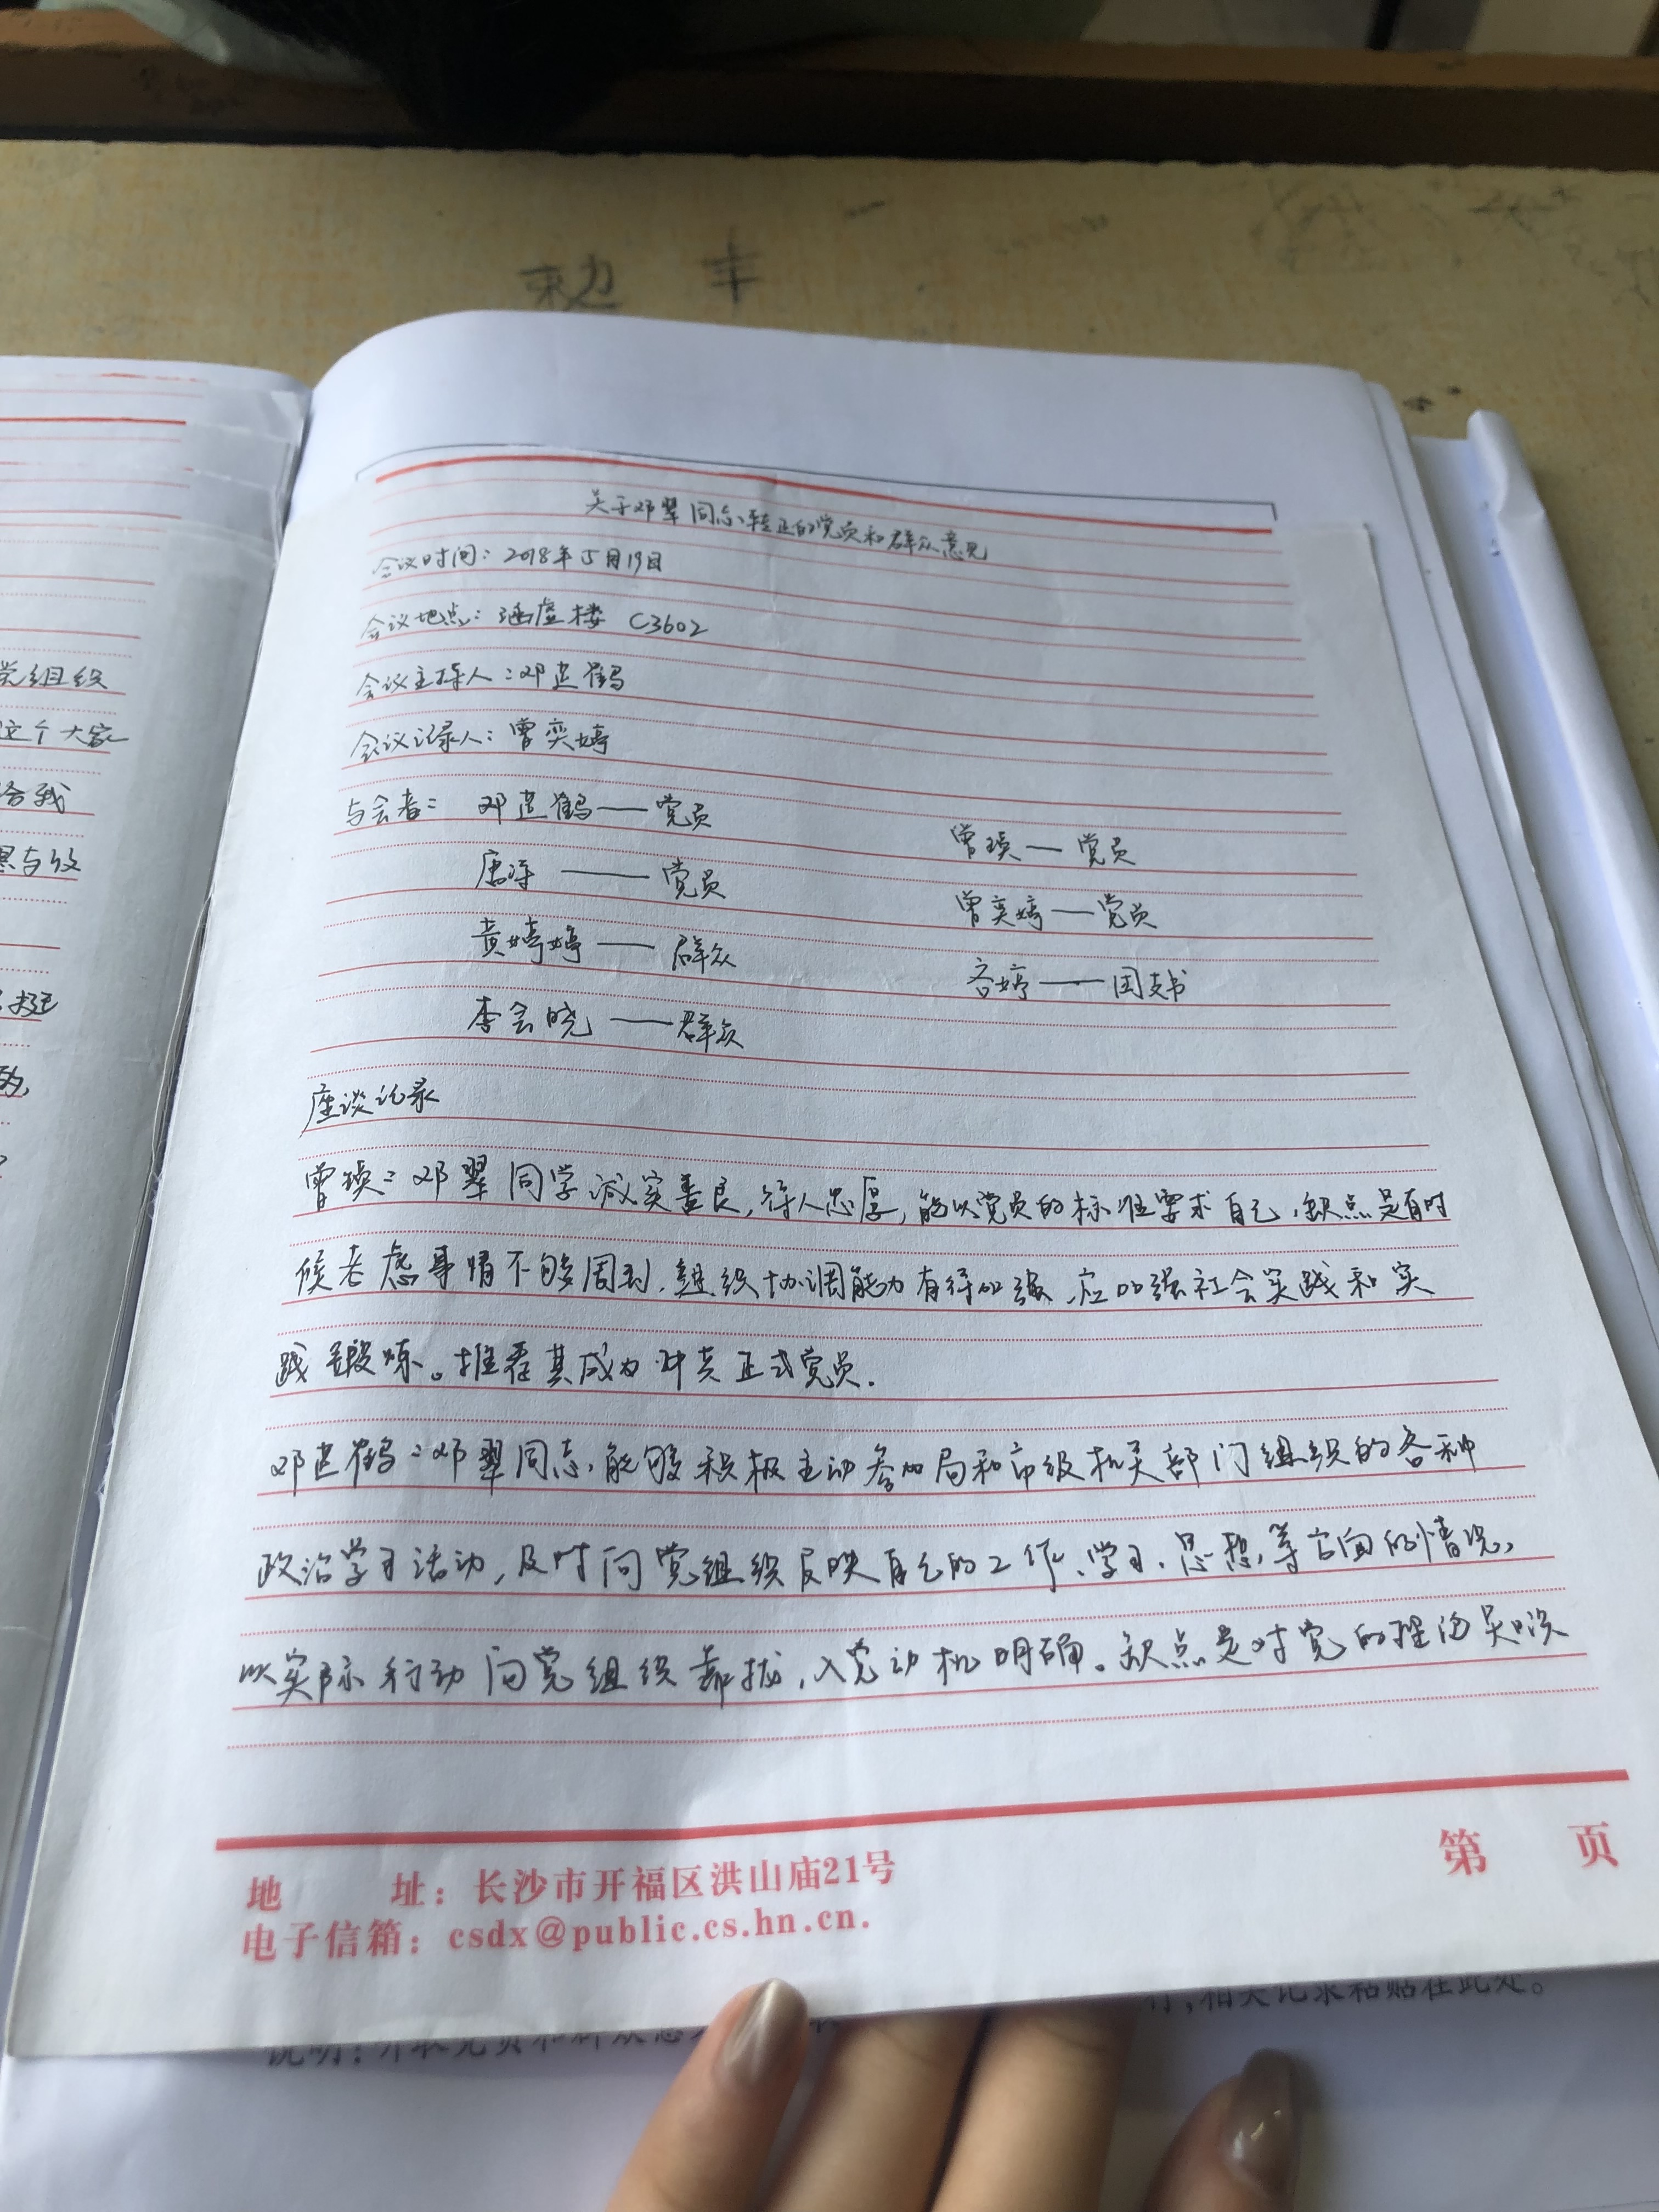 关于邓翠同志转正的党员和群众意见
会议时间：2018年5月19日
会议地点：涵虚楼 C3602
会议主持人：邓建鹤
会议记录人：曾奕婷
与会者： 邓建鹤——党员 曾瑛——党员
唐 ——党员 曾奕婷——党员
黄婷婷——群众 婷——团支书
李会晓——群众
座谈记录
曾瑛：邓翠同学诚实善良，待人忠厚，能以党员的标准要求自己，缺点是有时
候考虑事情不够周到，组织协调能力有待加强，应加强社会实践和实
践锻炼。推荐其成为中共正式党员．
邓建鹤：邓翠同志，能够积极主动参加局和市级机关部门组织的各种
政治学习活动，及时向党组织反映自己的工作、学习、思想、等方面的情况，
以实际行动向党组织靠拢，入党动机明确。缺点是对党的理论只
地 址：长沙市开福区洪山庙21号
第 页
电子信箱：csdx@public.cs.hn.cn.
党组织
这个大家
给我